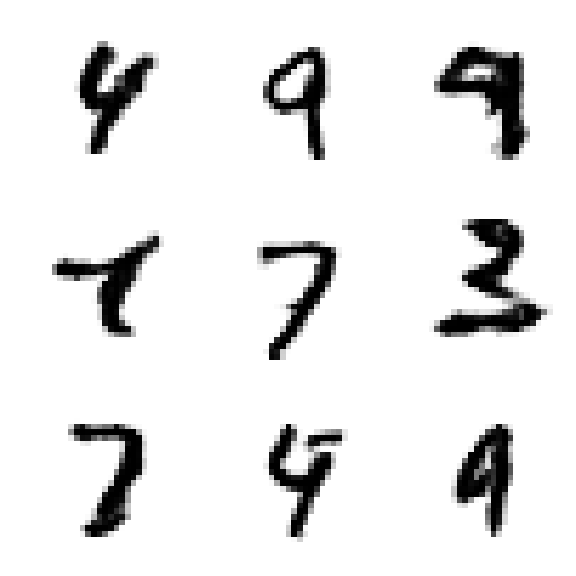 4 9 9
7 3
7 4 9